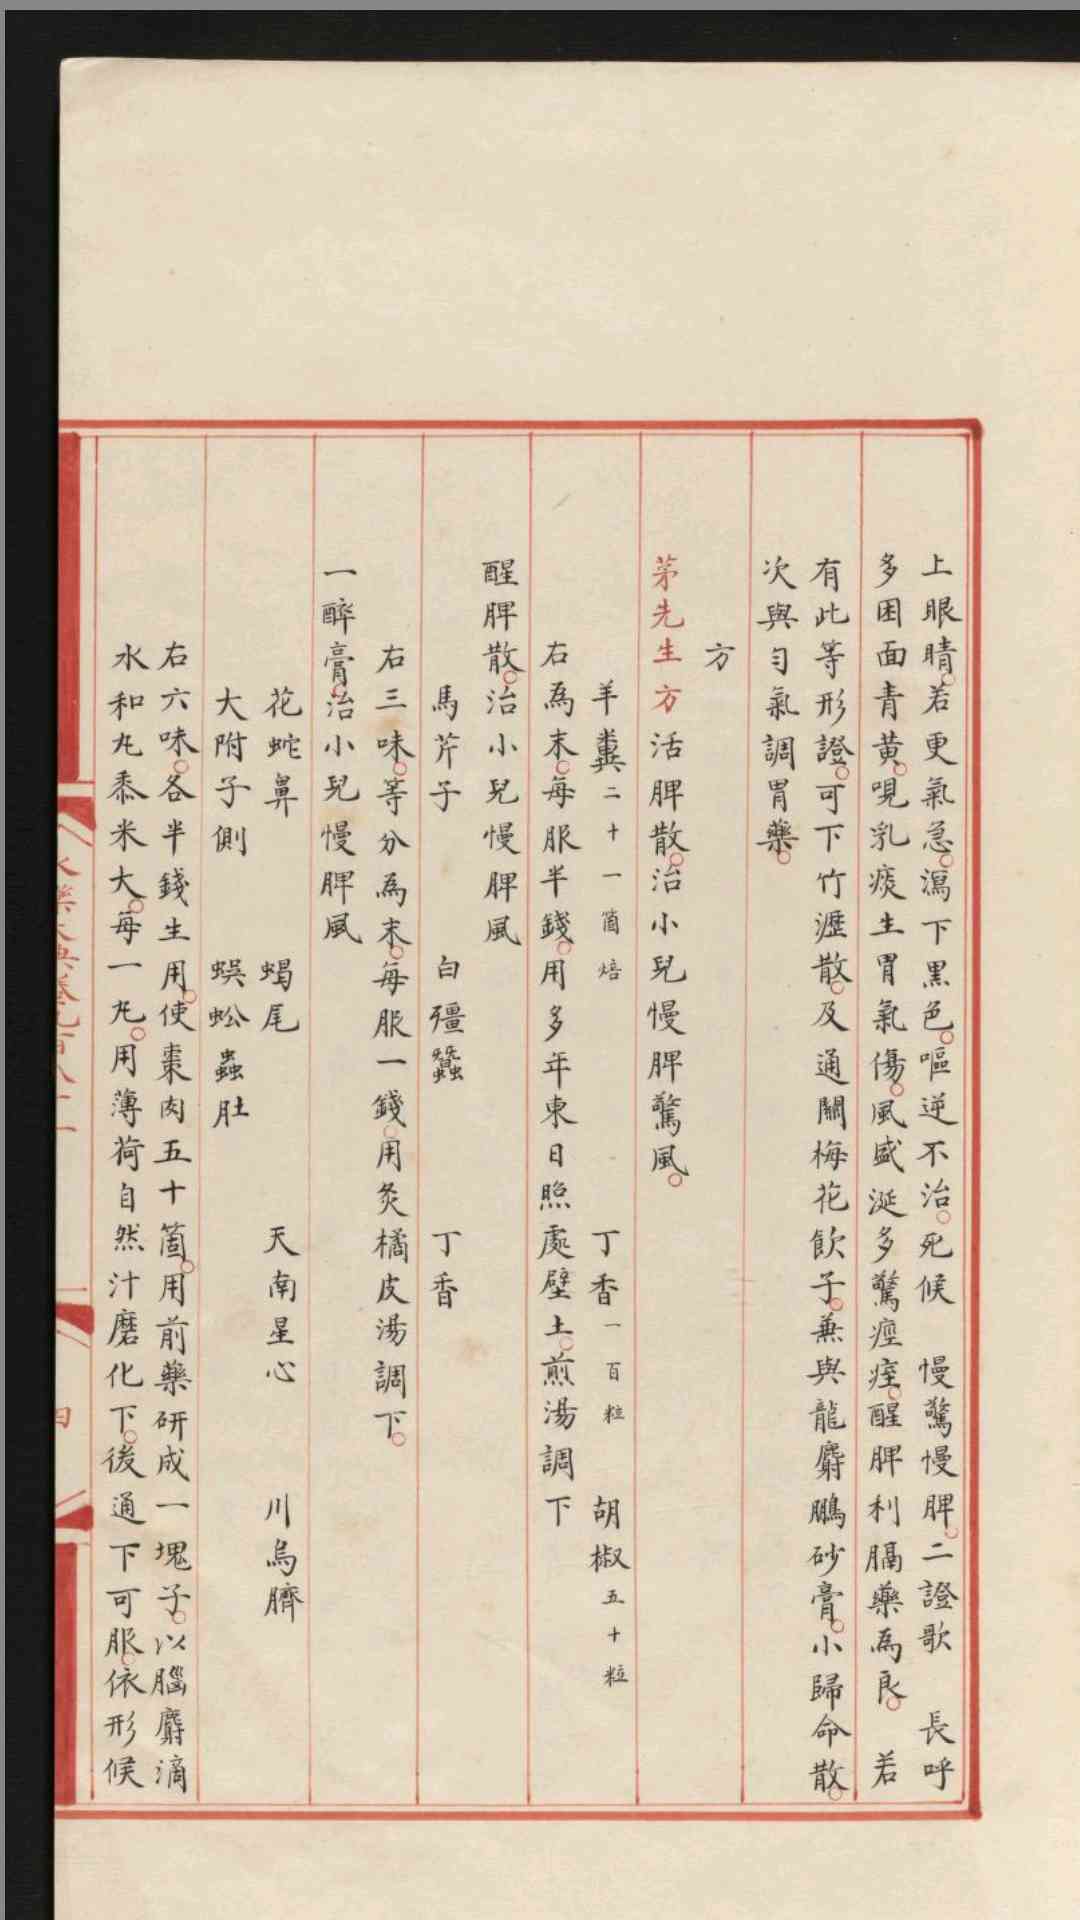 上眼睛若更氣急瀉下黑色嘔逆不治死候　慢驚慢脾二證歌　長呼
多困面青黃哯乳痰生胃氣傷風盛涎多驚瘂痓醒脾利膈藥為良　若
有此等形證可下竹瀝散及通關梅花飲子兼與龍麝鵬砂膏小歸命散
次與勻氣調胃藥
方
茅先生方活脾散治小兒慢脾驚風
羊糞二十一箇焙　丁香一百粒　胡椒五十粒
右為末每服半錢用多年東日照處壁土煎湯調下
醒脾散治小兒慢脾風
馬芹子　白殭蠶　丁香
右三味等分為末每服一錢用炙橘皮湯調下
一醉膏治小兒慢脾風
花蛇鼻　蝎尾　天南星心　川烏臍
大附子側　蜈蚣蟲肚
右六味各半錢生用使棗肉五十箇用前藥研成一塊子以腦麝滴
水和丸黍米大每一丸用薄荷自然汁磨化下後通下可服依形候
四